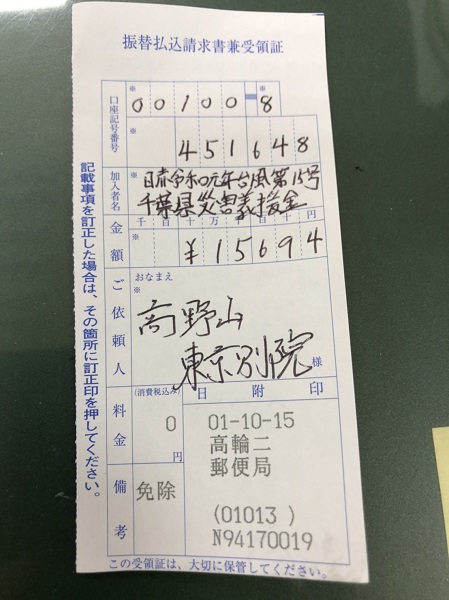 振替払込請求書兼受領証
口座記号番号
※
00100-8
※
451648
加入者名
※
日赤令和元年台風第15号
千葉県災害義援金
金額
千百十万千百十円
※
¥15694
ご依頼人
おなまえ
※
高野山
東京別院
様
料金
(消費税込み)
0
円
備考
免除
日附印
01-10-15
高輪二
郵便局
(01013 )
N94170019
記載事項を訂正した場合は、その箇所に訂正印を押してください。
この受領証は、大切に保管してください。